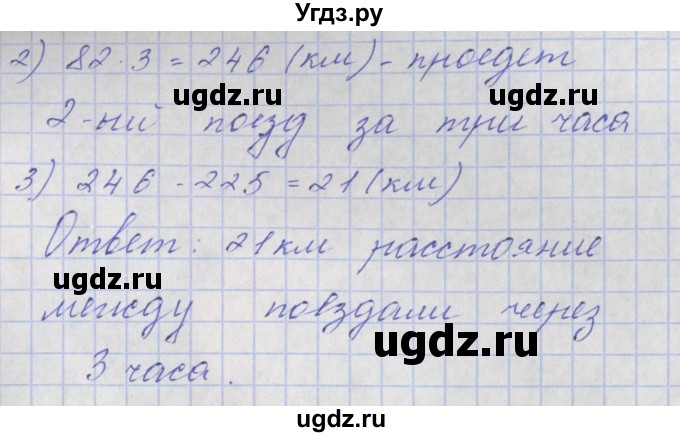 Угдз.ру
2) 82 · 3 = 246 (км) - проедет
ugdz.ru ugdz.ru
2-ий поезд за три часа
3) 246 - 225 = 21 (км)
Ответ: 21 км расстояние
ugdz.ru
между поездами через
ugdz.ru
3 часа.
ugdz.ru